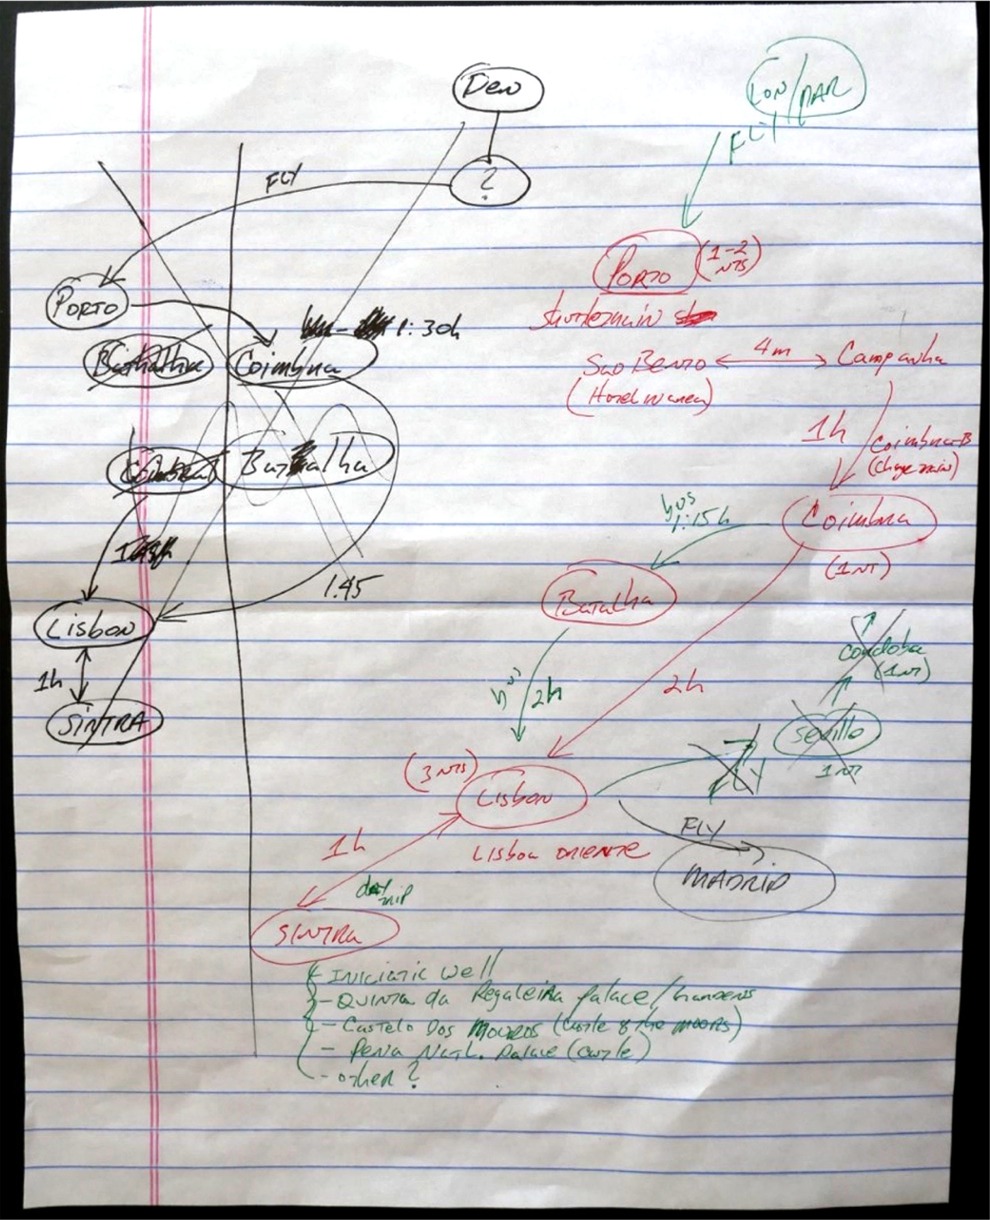 Den
?
FLY
PORTO
1:30h
Bathalha
Coimbra
Coimbra
Batalha
1.45
Lisbon
1h
SINTRA
LON/PAR
FLY
PORTO (1-2 NTS)
Sao Bento 4m Campanha
(Hotel in area)
1h
Coimbra-B
(chge train)
bus
1:15h
Coimbra
(1NT)
Batalha
bus 2h
2h
Cordoba
(1NT)
Sevilla
1NT
(3 NTS)
Lisbon
FLY
FLY
1h
LISBOA ORIENTE
MADRID
day trip
SINTRA
- INICIATIC well
- QUINTA da Regaleira palace/Gardens
- Castelo Dos MOUROS (castle of the moors)
- Pena Natl. Palace (castle)
- other?